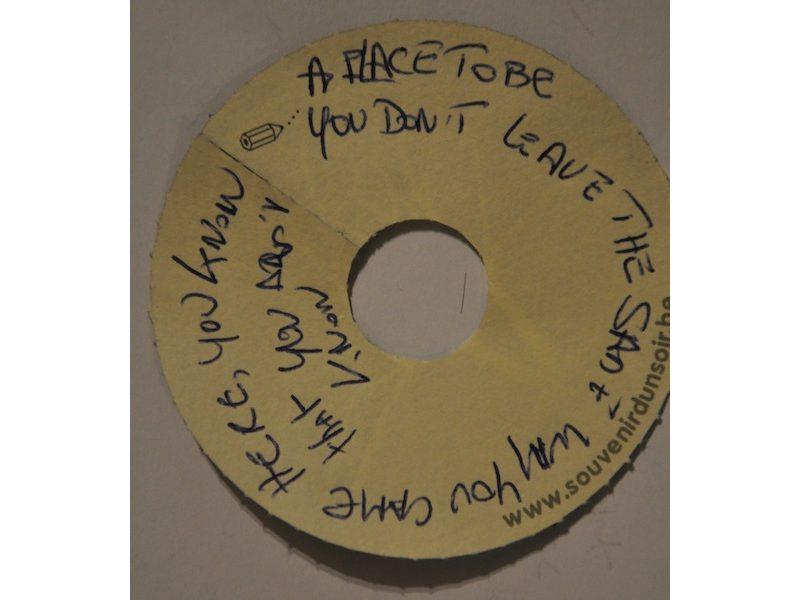 A PLACE TO BE
YOU DON'T LEAVE THE WAY YOU CAME
HERE, YOU KNOW
THAT YOU DON'T
KNOW
www.souvenirdunsoir.be